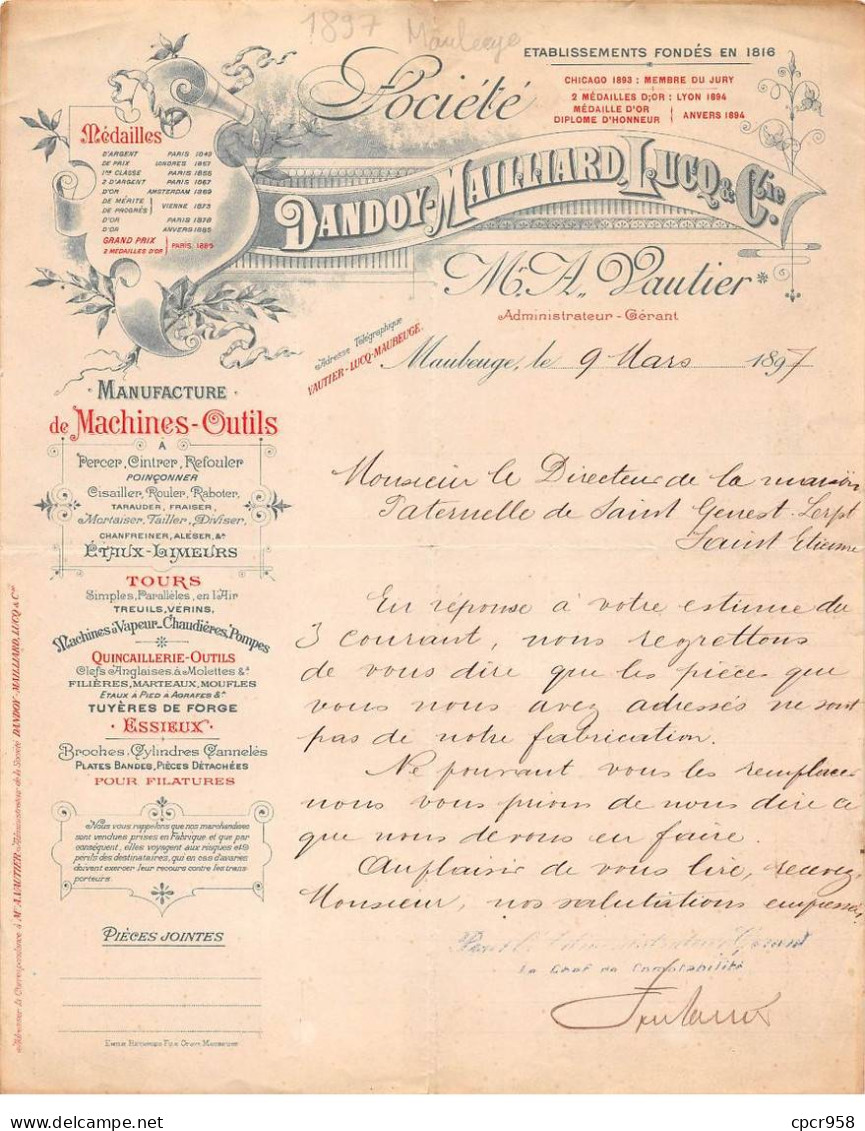 1897 Maubeuge
ETABLISSEMENTS FONDÉS EN 1816
Société
CHICAGO 1893 : MEMBRE DU JURY
2 MÉDAILLES D'OR : LYON 1894
MÉDAILLE D'OR
DIPLOME D'HONNEUR
ANVERS 1894
Médailles
D'ARGENT PARIS 1849
DE PRIX LONDRES 1857
1re CLASSE PARIS 1855
2 D'ARGENT PARIS 1867
D'OR AMSTERDAM 1869
DE MÉRITE
DE PROGRÈS
VIENNE 1873
D'OR PARIS 1878
D'OR ANVERS 1885
GRAND PRIX
2 MÉDAILLES D'OR
PARIS 1889
DANDOY-MAILLIARD, LUCQ & Cie.
Mr. A. Vautier
Administrateur-Gérant
Adresse Télégraphique
VAUTIER-LUCQ-MAUBEUGE.
Maubeuge, le 9 Mars 1897
MANUFACTURE
de Machines-Outils
À
Percer, Cintrer, Refouler
POINÇONNER
Cisailler, Rouler, Raboter,
TARAUDER, FRAISER,
Mortaiser, Tailler, Diviser,
CHANFREINER, ALÉSER, &a
ÉTAUX-LIMEURS
TOURS
Simples, Parallèles, en l'Air
TREUILS, VÉRINS,
Machines à Vapeur_Chaudières, Pompes
QUINCAILLERIE-OUTILS
Clefs Anglaises à Molettes &a
FILIÈRES, MARTEAUX, MOUFLES
ETAUX À PIED À AGRAFES &a
TUYÈRES DE FORGE
ESSIEUX
Broches, Cylindres Cannelés
PLATES BANDES, PIÈCES DÉTACHÉES
POUR FILATURES
Nous vous rappelons que nos marchandises
sont vendues prises en Fabrique et que par
conséquent, elles voyagent aux risques et
périls des destinataires, qui en cas d'avaries
doivent exercer leur recours contre les trans-
porteurs.
PIÈCES JOINTES
Adresser la Correspondance à Mr A. VAUTIER, Administrateur de la Société DANDOY-MAILLIARD, LUCQ & Cie
Monsieur le Directeur de la maison
Paternelle de Saint Genest-Lerpt
Saint Etienne
En réponse à votre estimée du
3 courant, nous regrettons
de vous dire que les pièces que
vous nous avez adressés ne sont
pas de notre fabrication.
Ne pouvant vous les remplacer
nous vous prions de nous dire ce
que nous devons en faire.
Au plaisir de vous lire, recevez,
Monsieur, nos salutations empressées
Pour l'Administrateur Gérant
Le Chef de Comptabilité
cpcr958